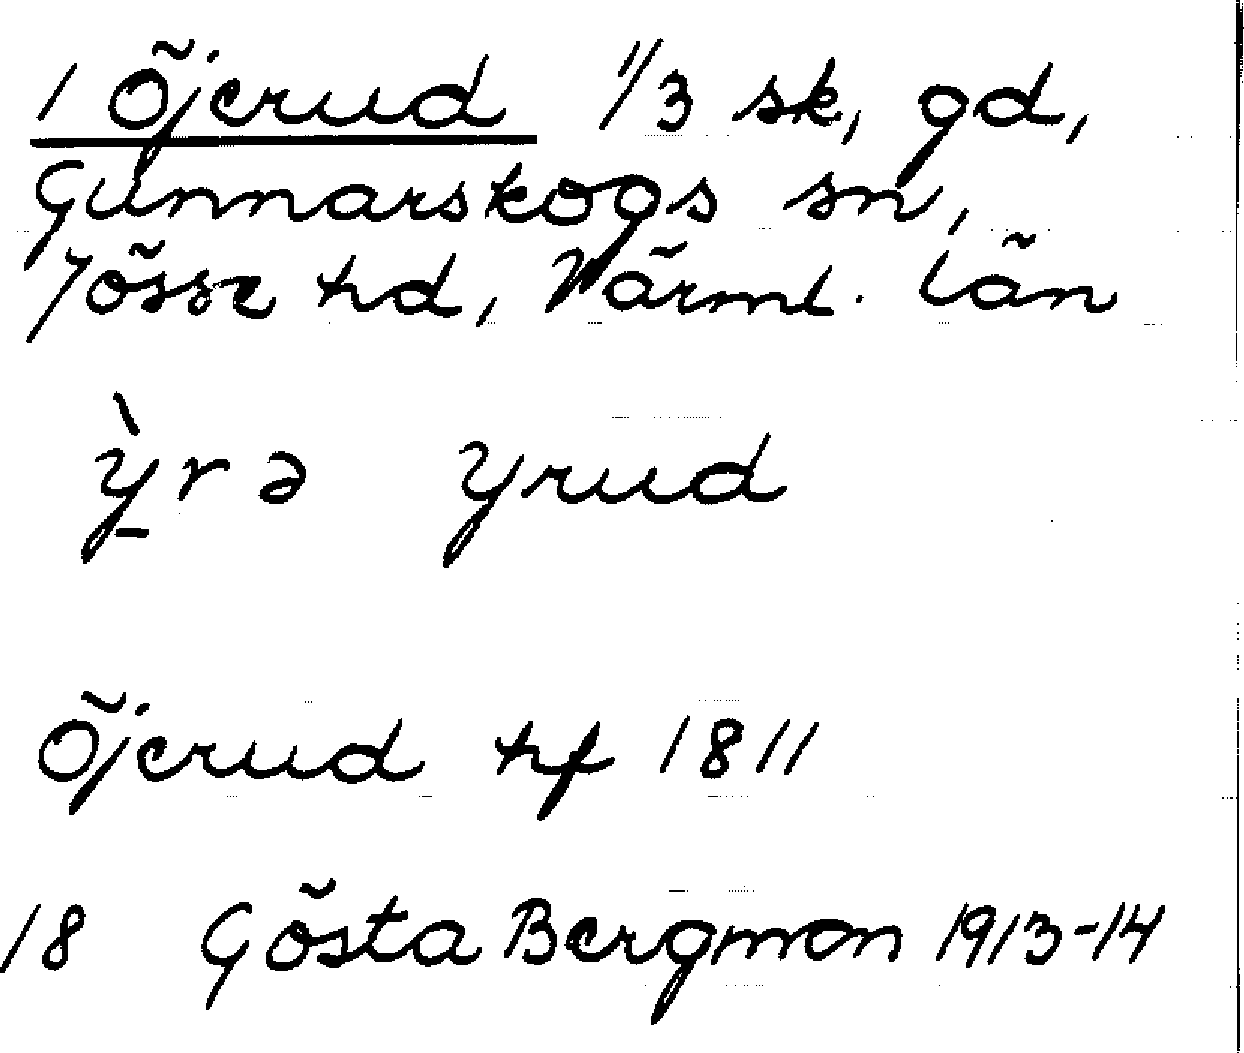 1 Öjerud 1/3 sk, gd,
Gunnarskogs sn,
Jösse hd, Värml. län
ỳ̠rə yrud
Öjerud hf 1811
18 Gösta Bergman 1913-14